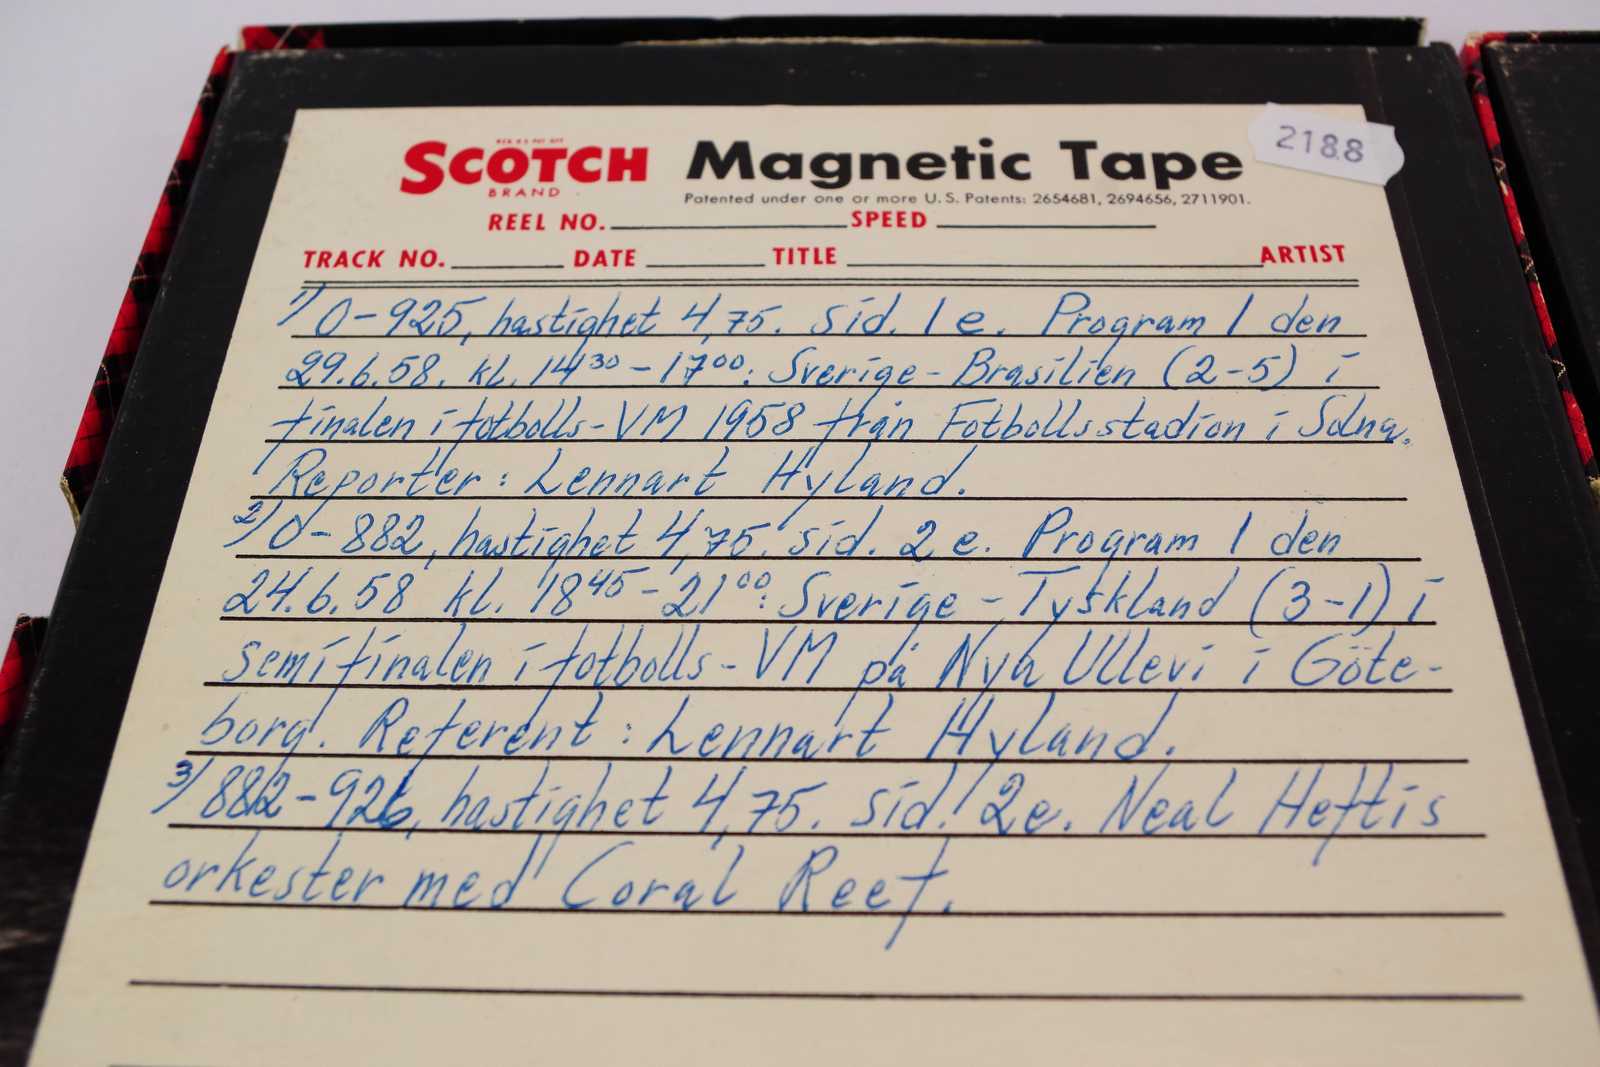 REG. U.S. PAT. OFF.
SCOTCH Magnetic Tape 2188
BRAND
Patented under one or more U.S. Patents: 2654681, 2694656, 2711901.
REEL NO. SPEED
TRACK NO. DATE TITLE ARTIST
1/ 0-925, hastighet 4,75. sid. 1 e. Program 1 den
29.6.58. kl. 14³⁰-17⁰⁰: Sverige-Brasilien (2-5) i
finalen i fotbolls-VM 1958 från Fotbollsstadion i Solna.
Reporter: Lennart Hyland.
2/ 0-882, hastighet 4,75. sid. 2 e. Program 1 den
24.6.58 kl. 18⁴⁵-21⁰⁰: Sverige-Tyskland (3-1) i
semifinalen i fotbolls-VM på Nya Ullevi i Göte-
borg. Referent: Lennart Hyland.
3/ 882-926, hastighet 4,75. sid. 2e. Neal Heftis
orkester med Coral Reef.